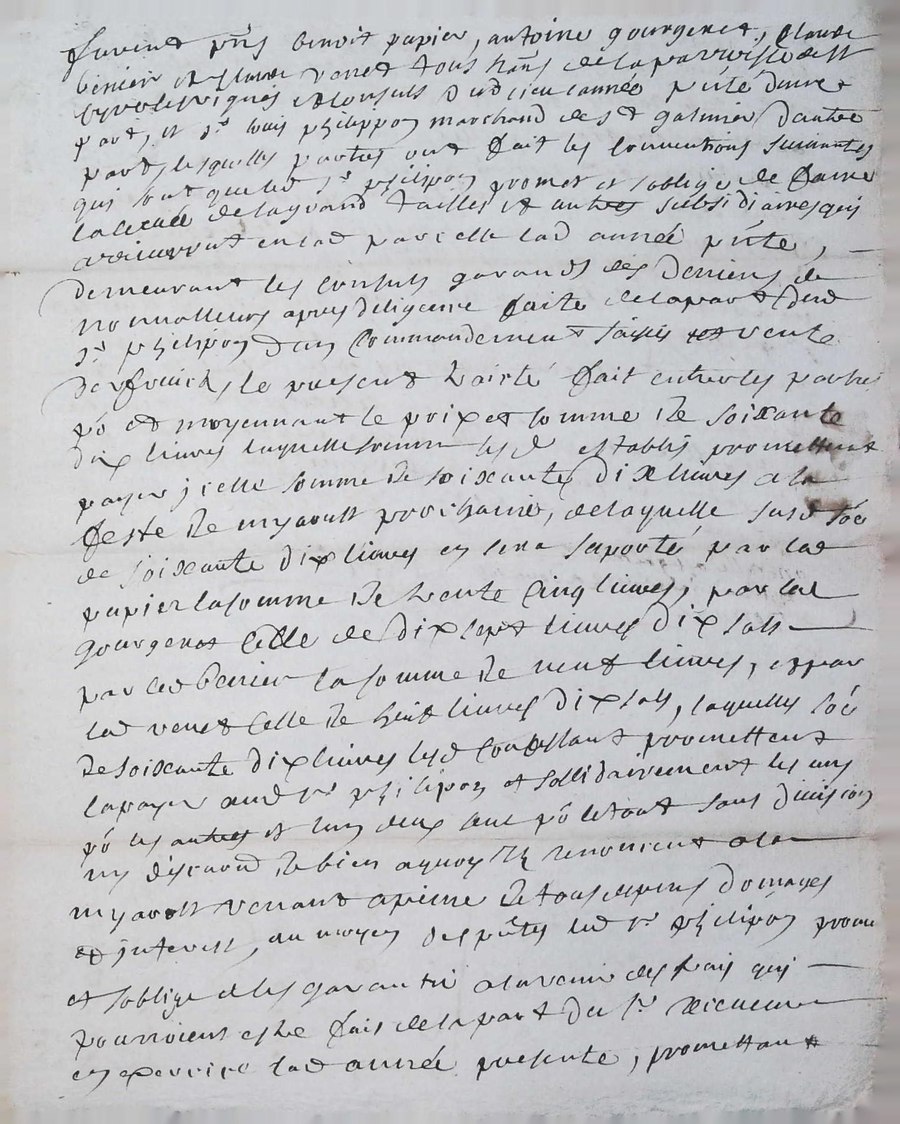 furent pnts benoit papier, antoine gourgenet, Claude
benier et Claude venet tous hans de la parroisse de St
consuls dud lieu lannée pnte dune
part, et sr louis philippon marchand de St galmier dautre
part, lesquelles parties ont fait les conventions suivantes
qui sont que led sr philipon promet et soblige de faire
la de la grand taille et autres subsidiaires qui
en lad parcelle lad année pnte,
demeurant les consuls garands des deniers de
nonvalleurs apres diligence faite de la part dud
sr philipon dun Commandement saisie et vente
le present traité fait entre les parties
po et moyennant le prix et somme de soixante
dix livres laquelle somme lesd establis promettent
payer jcelle somme de soixante dix livres a la
feste de my aoust prochaine, de laquelle susd soe
de soixante dix livres en sera suporté par led
papier la somme de trente Cinq livres, par led
gourgenet Celle de dix sept livres dix sols
par led benier la somme de neuf livres, et par
led venet Celle de huit livres dix sols, laquelle soe
de soixante dix livres lesd Confessants promettent
la payer aud sr philipon et sollidairement les uns
po les autres et lun deux seul po le tout sans division
ny discution de bien a quoy ils renoncent a la
my aoust venant a peine de tous despens domages
et interest, au moyen des pntes led sr philipon promet
et soblige de les garantir a lavenir des frais qui
pourroient estre fait de la part du sr Receveur
en exercice lad année presente, promettant